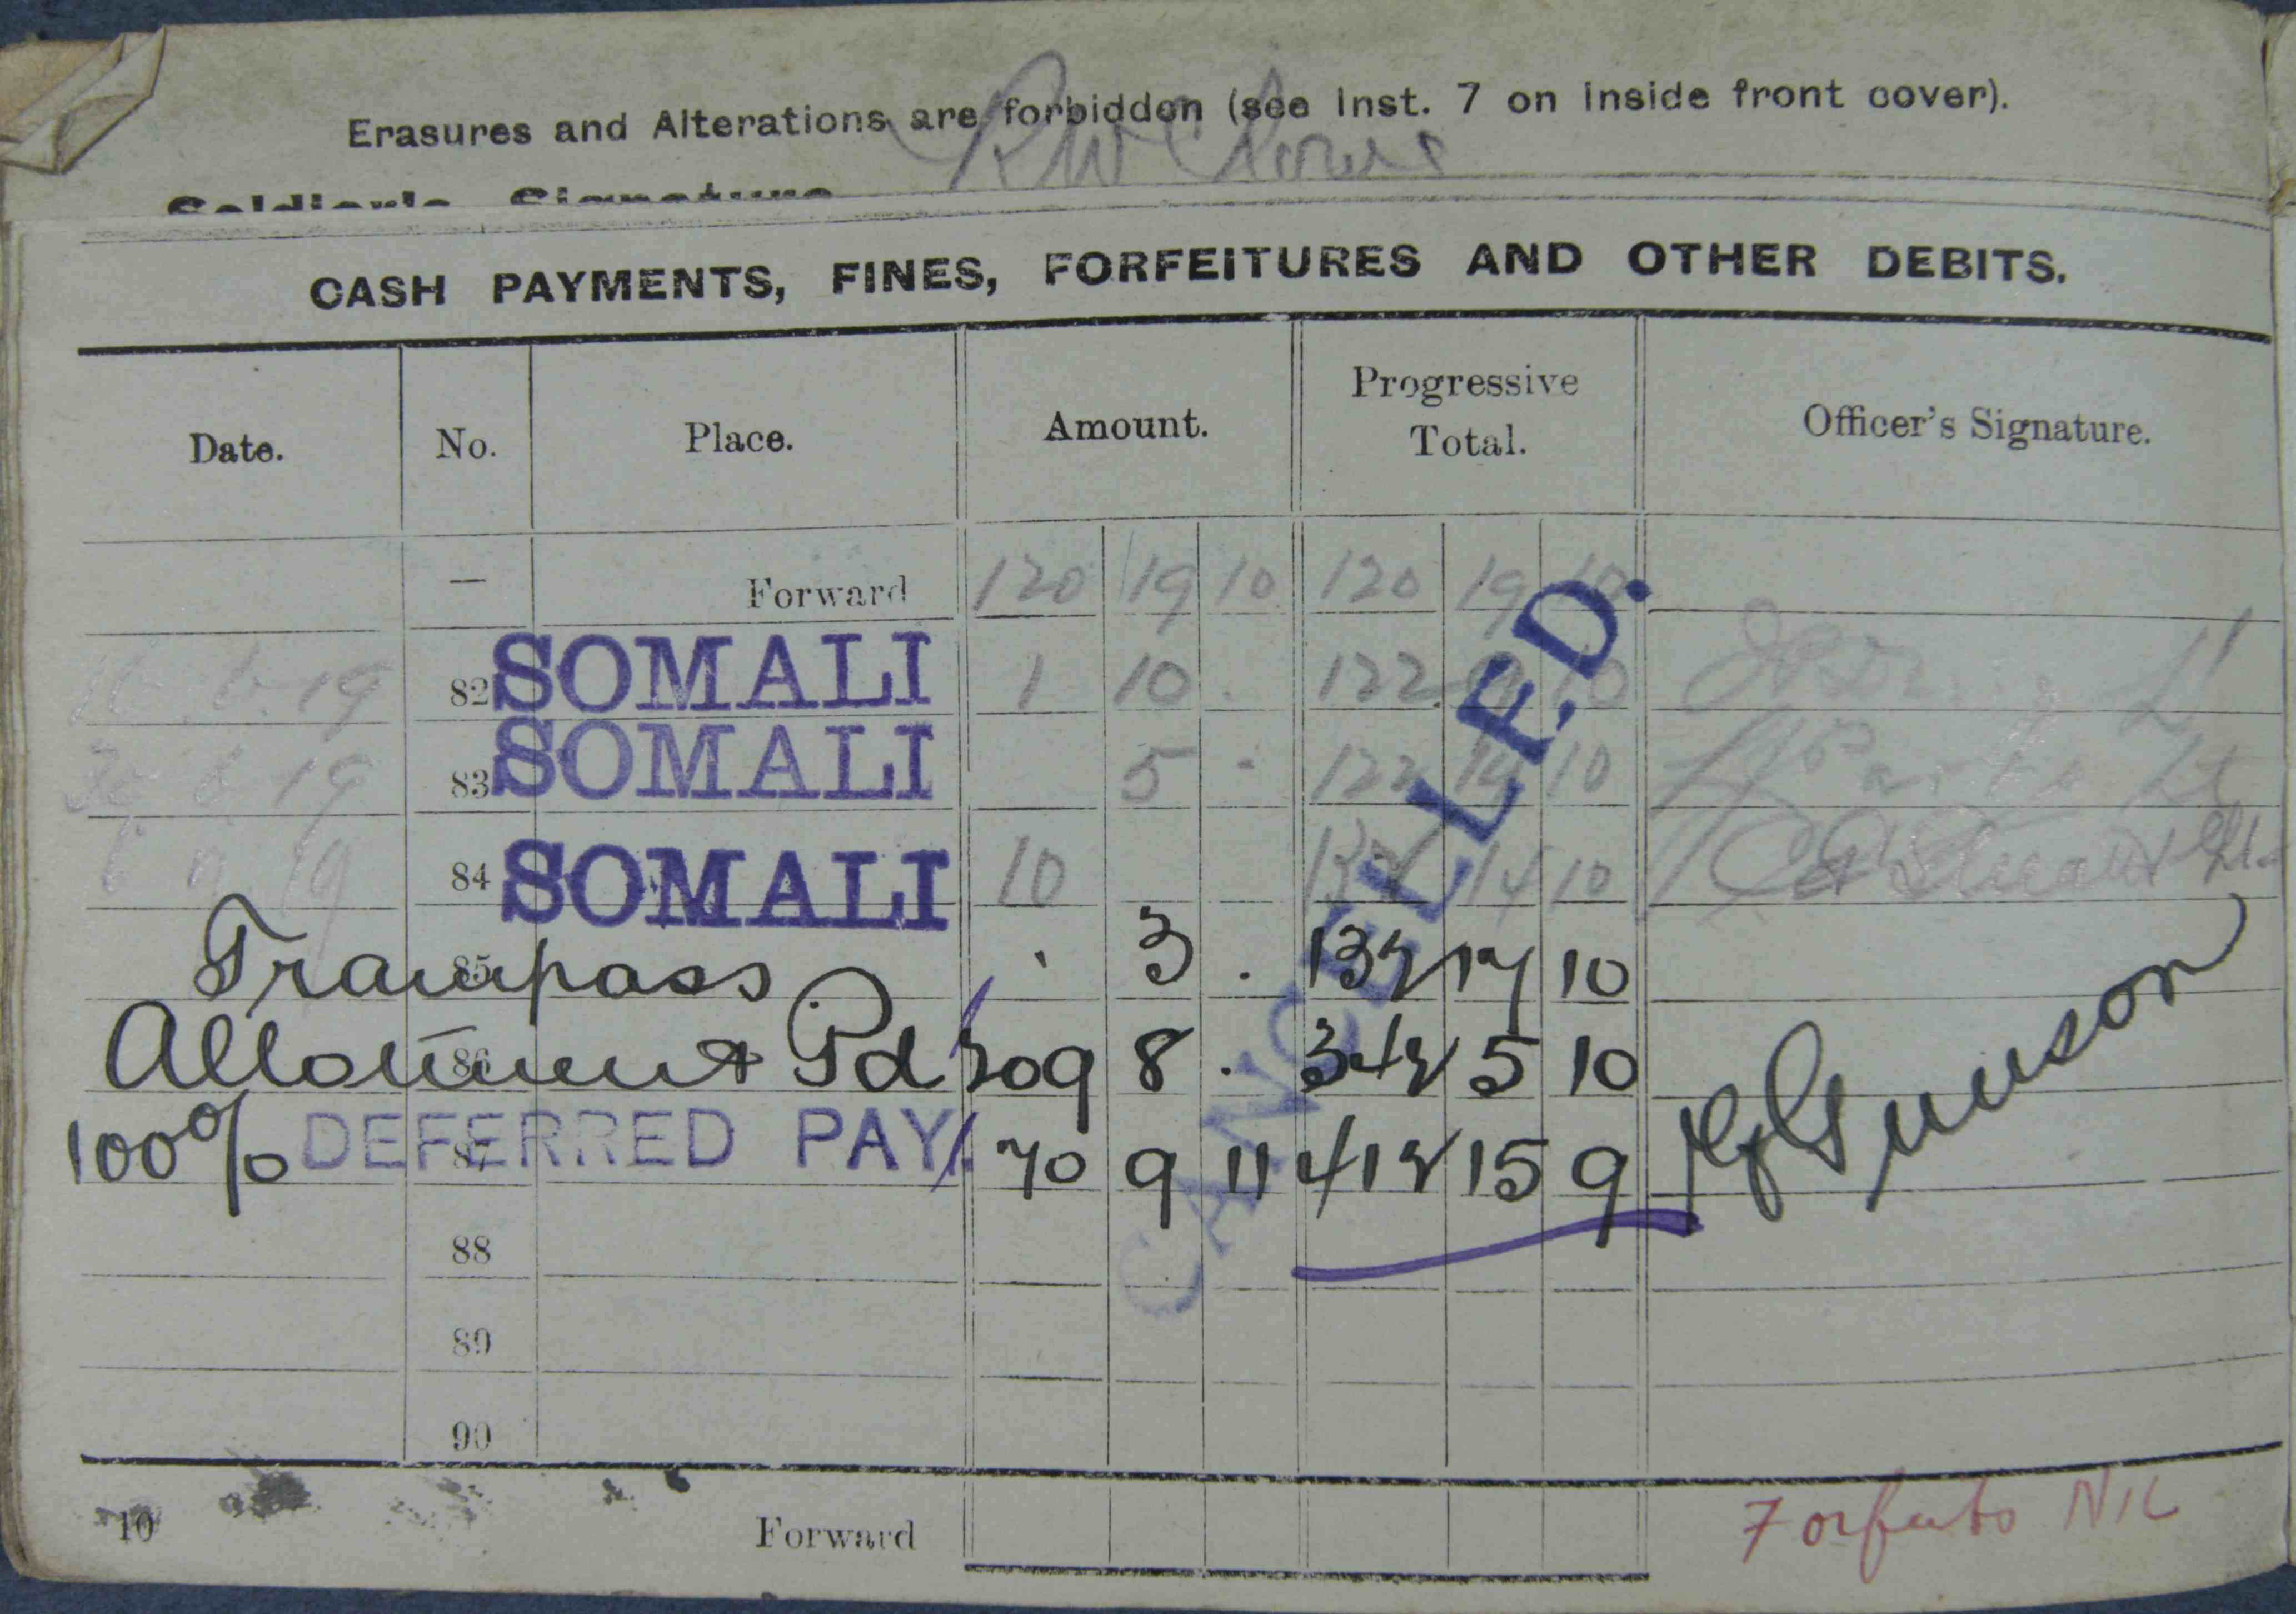 Erasures and Alterations are forbidden (see Inst. 7 on inside front cover).
Soldier's Signature
CASH PAYMENTS, FINES, FORFEITURES AND OTHER DEBITS.
Date. No. Place. Amount. Progressive Total. Officer's Signature.
— Forward 120 19 10 120 19 10
16.6.19 82 SOMALI 1 10 . 122 9 10
6 19 83 SOMALI 5 - 122 14 10
19 84 SOMALI 10 132 14 10
Trampass 85 . 3 . 132 17 10
Allotment Pd 86 209 8 . 342 5 10
100% DEFERRED PAY 87 70 9 11 412 15 9
88
89
90
CANCELLED.
10 Forward
Forfeits NIL